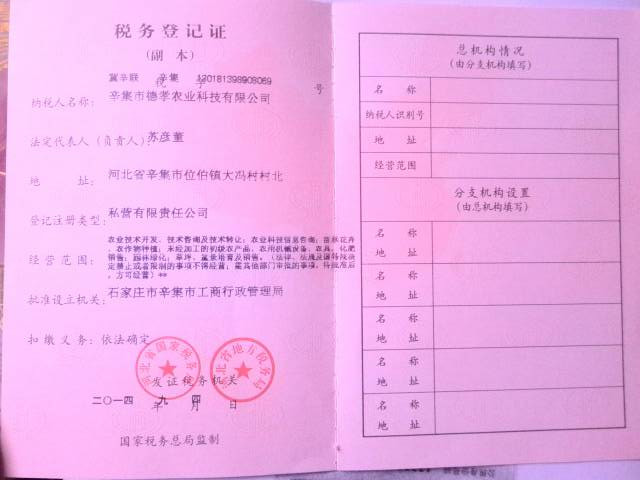 税务登记证
(副 本)
冀辛联 辛集 130181398908069
税 字 号
纳税人名称: 辛集市德孝农业科技有限公司
法定代表人(负责人) 苏彦董
地 址: 河北省辛集市位伯镇大冯村村北
登记注册类型: 私营有限责任公司
农业技术开发、技术咨询及技术转让;农业科技信息咨询;苗木花卉
、农作物种植;未经加工的初级农产品、农用机械设备、农具、化肥
经营范围: 销售;园林绿化;草坪、盆景培育及销售。(法律、法规及国务院决
定禁止或者限制的事项不得经营;需其他部门审批的事项,待批准后
,方可经营)**
批准设立机关: 石家庄市辛集市工商行政管理局
扣缴义务: 依法确定
河北省国家税务局
河北省地方税务局
发证税务机关
二〇一四 年 九 月 四 日
国家税务总局监制
总机构情况
(由分支机构填写)
名 称
纳税人识别号
地 址
经营范围
分支机构设置
(由总机构填写)
名 称
地 址
名 称
地 址
名 称
地 址
名 称
地 址
名 称
地 址